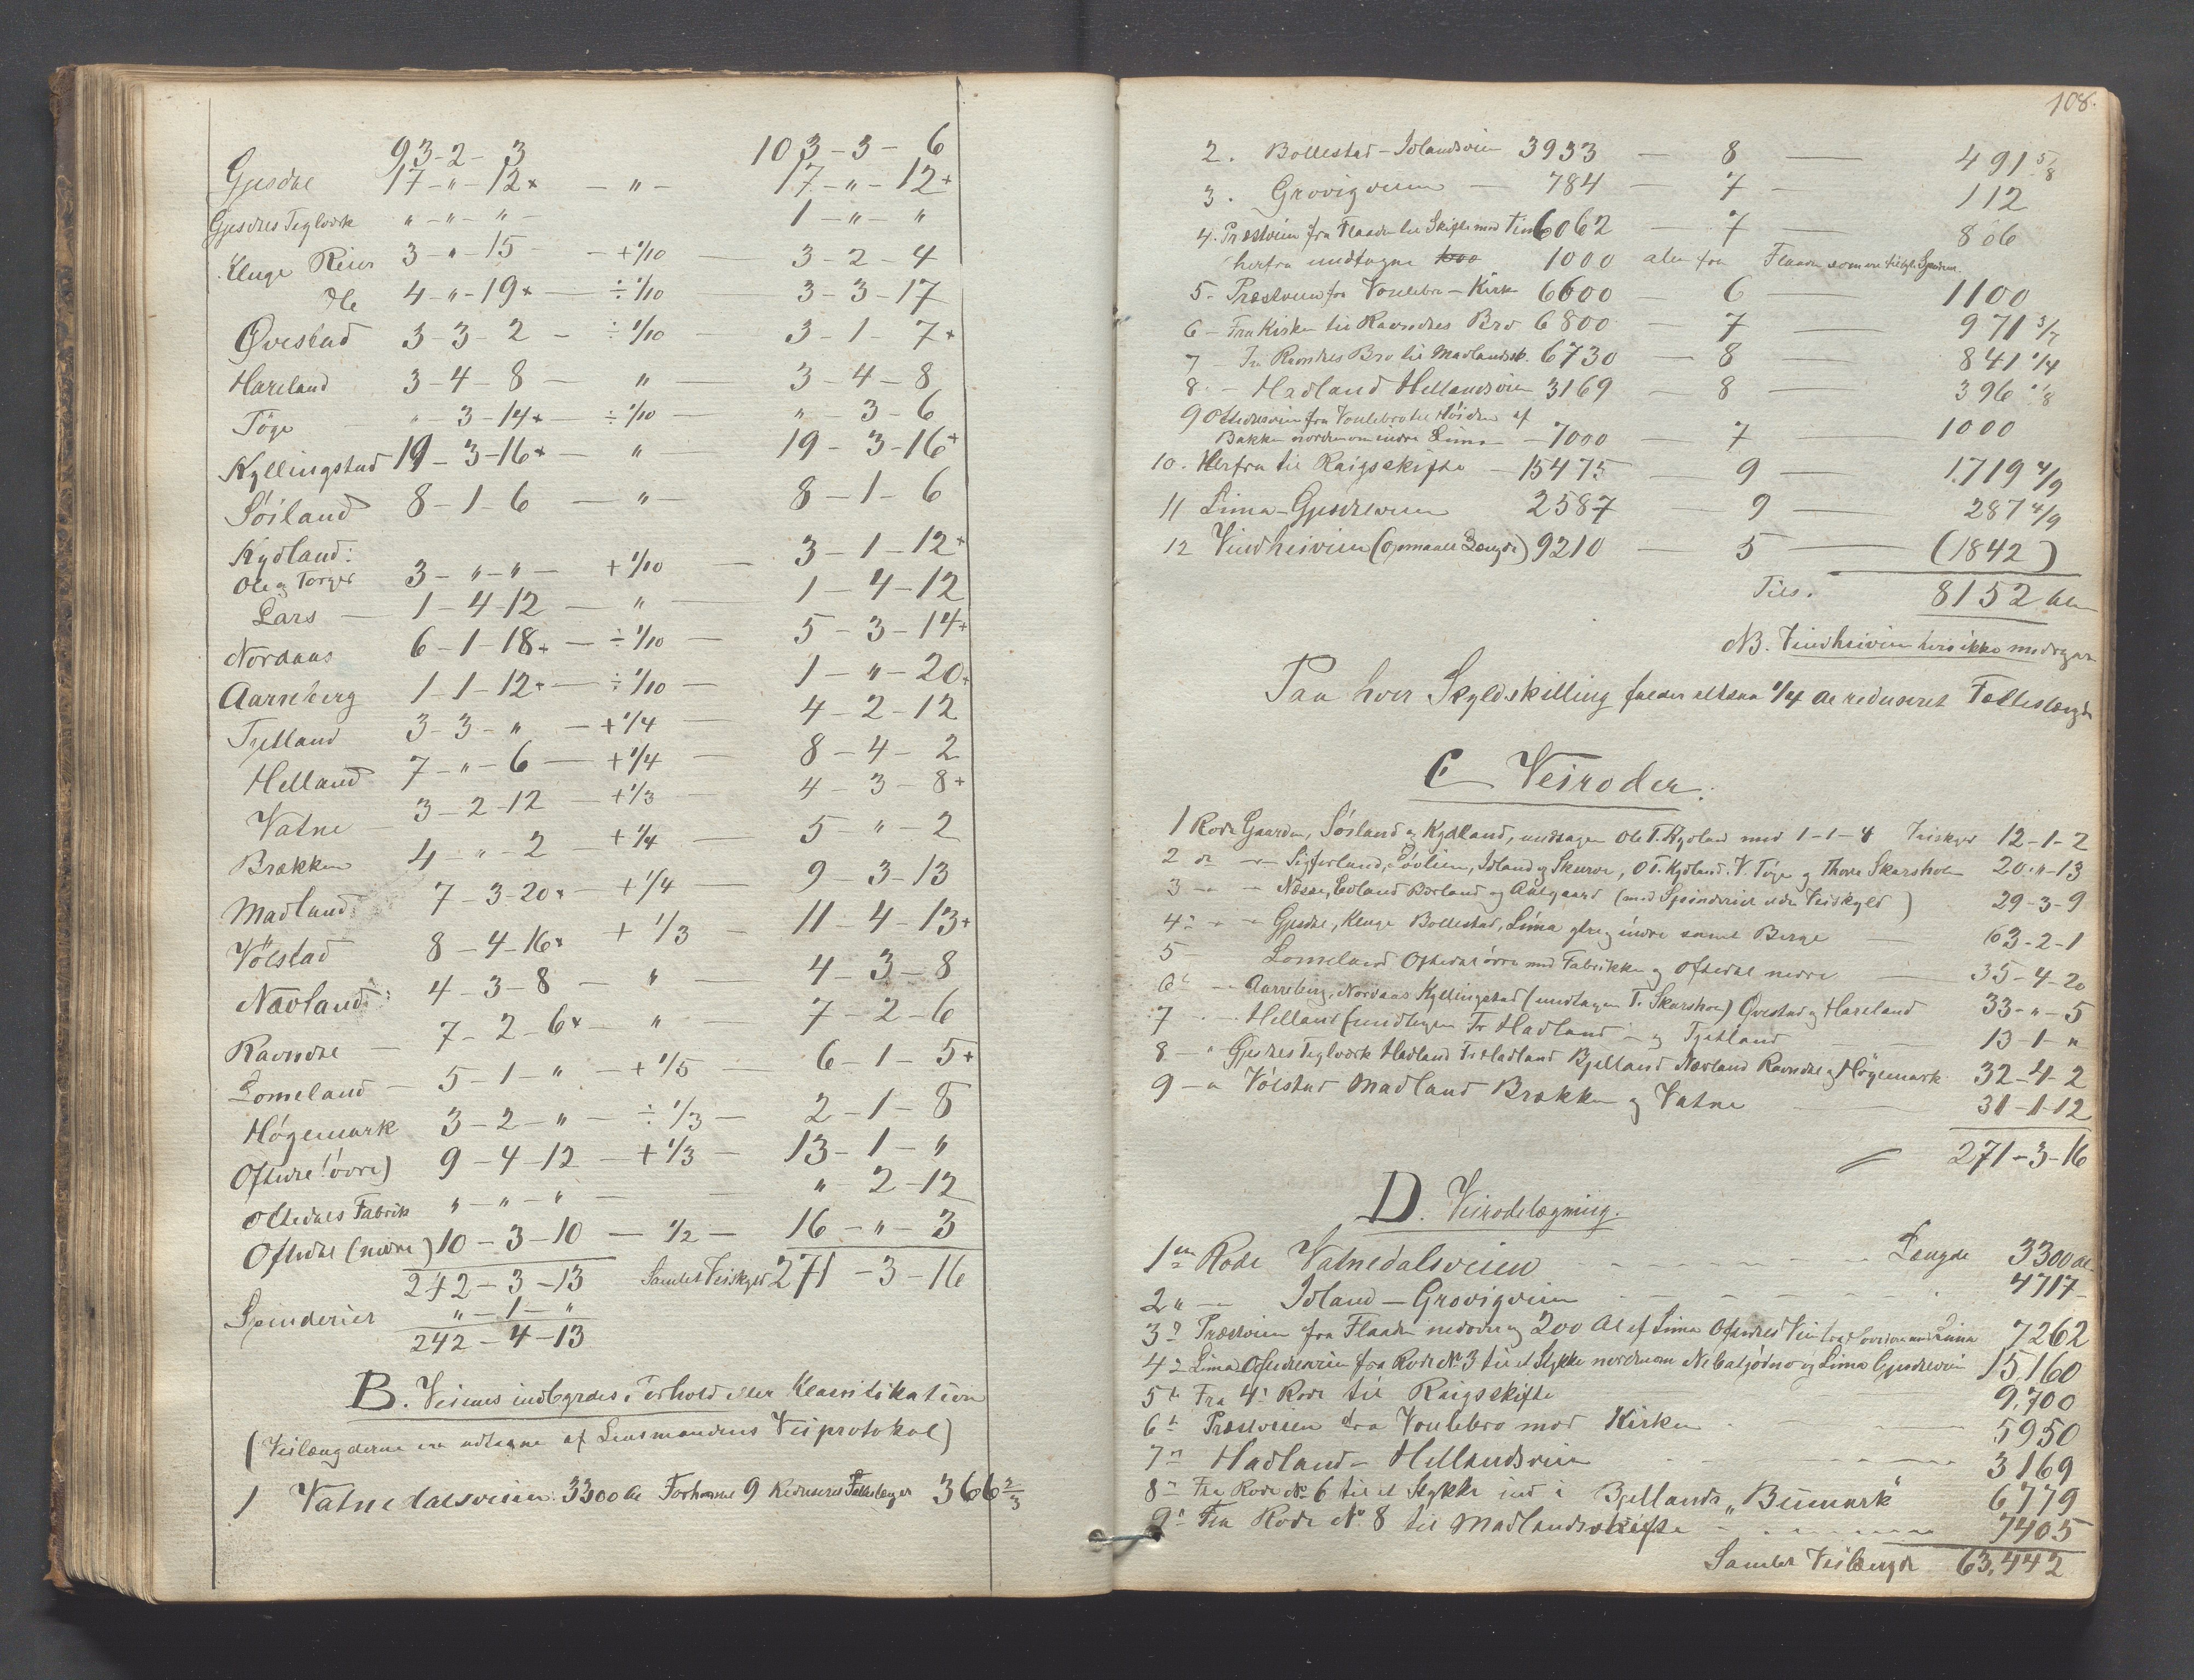 93-2-3 103-3-6
Gjesdal 17-"-12+ - " - 17-"-12+
Gjesdals Teglverk "-"-"- 1-"-"
Kluge Reier 3-"-15 - +1/10 - 3-2-4
Ole 4-"-19+ - ÷1/10 3-3-17
Øvestad 3-3-2 - ÷1/10 - 3-1-7+
Hareland 3-4-8 - " - 3-4-8
Töge "-3-14+ - ÷1/10 - "-3-6
Kyllingstad 19-3-16+ - " - 19-3-16+
Söiland 8-1-6 - " - 8-1-6
Kydland:
Ole og Torger 3-"-"- +1/10 - 3-1-12+
Lars - 1-4-12 - " - 1-4-12
Nordaas 6-1-18+ - ÷1/10 - 5-3-14+
Aarreberg 1-1-12+ - ÷1/10 - 1-"-20+
Tjetland 3-3-" - +1/4 - 4-2-12
Helland 7-"-6 - +1/4 - 8-4-2
Vatne - 3-2-12 - +1/3 - 4-3-8+
Brækken 4-"-2 - +1/4 - 5-"-2
Madland 7-3-20+ - +1/4 - 9-3-13
Völstad 8-4-16+ + 1/3 - 11-4-13+
Nævland 4-3-8 - " - 4-3-8
Ravndal - 7-2-6+ - " - 7-2-6
Lomeland - 5-1-" - +1/5 - 6-1-5+
Högemark 3-2-" - ÷1/3 - 2-1-8
Oftedal (övre) 9-4-12 - +1/3 - 13-1-"
Oftedals Fabrik "-"-"- - "-2-12
Oftedal (nedre) 10-3-10 - 1/2 - 16-"-3
242-3-13 Samlet Veiskyld 271-3-16
Spinderier "-1-"
242-4-13
B. Veienes indbyrdes Forhold eller Klassifikation
(Veilængderne ere udtagne af Lensmandens Veiprotokol)
1 Vatnedalsveien: 3300 Al Forhoanne 9 Reduseret Fælleslængde 366 2/3
108.
2. Bollestad-Idlandsveien 3933 - 8 - 491 5/8
3. Grovigveien - 784 - 7 - 112
4. Præstveien fra Flaaden til Skifte med Time 6062 - 7 - 806
herfra undtagne 1000 1000 alen fra Flaaden som ere
5- Præstveien fra Voulebro-Kirke 6600 - 6 - 1100
6- Fra Kirken til Ravndals Bro 6800 - 7 - 971 3/7
7 - Fra Ravndals Bro til Madlandssk. 6730 - 8 - 841 1/4
8. - Hadland Hellandsveien 3169 - 8 - 396 1/8
9 Oftedalsveien fra Voulebro til Höiden af
Bakken nordenom indre Lima - 7000 - 7 - 1000
10. Herfra til Raigsskifte - 15475 - 9 - 1719 4/9
11 Lima-Gjesdalveien 2587 - 9 - 287 4/9
12 Vindheiveien (Opmaalt Længde) 9210 - 5 - (1842)
Tils. 8152 Alen
NB. Vindheiveien heri ikke medregnet
Paa hver Skyldskilling falder altsaa 1/4 Al reduseret Fælleslængde
C Veiroder.
1 Rode Gaarden, Söiland og Kydland, undtagen Ole T. Kydland med 1-1-4 Veiskyld 12-1-2
2 do - Sigferland, Lövlien, Idland og Skurve, O. T. Kydland. V. Töge og Thore Skarshoe 20-"-13
3 - - Næsse, Edland Bærland og Aalgaard (med Spinderiet Veiskyld) 29-3-9
4 - - Gjesdal, Kluge Bollestad, Lima ytre og indre samt Berge 63-2-1
5 - Lomeland Oftedal övre med Fabrikken og Oftedal nedre - 35-4-20
6 - Aarreberg, Nordaas Kyllingstad (undtagen T. Skarshoe) Øvestad og Hareland 33-"-5
7 - - Helland (undtagen Fr Hadland - og Tjetland 13-1-"
8 - " Gjesdals Teglverk Hadland Fr Hadland Bjelland Nævland Ravndal og Högemark 32-4-2
9 - " Völstad Madland Brækken og Vatne - 31-1-12
271-3-16
D. Veirodelægning.
1ste Rode Vatnedalsveien - - Længde 3300 al
2" - Idland-Grovigveien - - - 4717
3" Præstveien fra Flaaden nedover og 200 Al af Lima Oftedals Vei 7262
4" Lima Oftedalsveien fra Rode No 3 til et Stykke nordenom og Lima Gjesdalveien 15,160
5" Fra 4" Rode til Raigsskifte 9,700
6" Præstveien fra Voulebro mod Kirken 5950
7" Hadland-Hellandsveien - - - 3169
8" Fra Rode No 6 til et Stykke ind i Bjellands "Bumark" 6779
9" Fra Rode No. 8 til Madlandsskifte - - - 7405
Samlet Veilængde 63,442